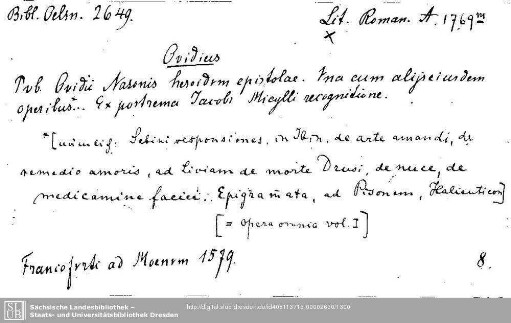 Bibl. Oelsn. 2649.
Lit. Roman. A. 1769m
x
Ovidius
Pvb. Ovidii Nasonis heroidvm epistolae. Vna cum alijs eiusdem
operibus*. Ex postrema Jacobi Micylli recognitione.
*[nämlich: Sabini responsiones, in Ibin, de arte amandi, de
remedio amoris, ad Liviam de morte Drusi, de nuce, de
medicamine faciei. Epigramata, ad Pisonem, Halieuticon]
[= opera omnia vol. I]
Francofvrti ad Moenvm 1579.
8.
Sächsische Landesbibliothek –
Staats- und Universitätsbibliothek Dresden